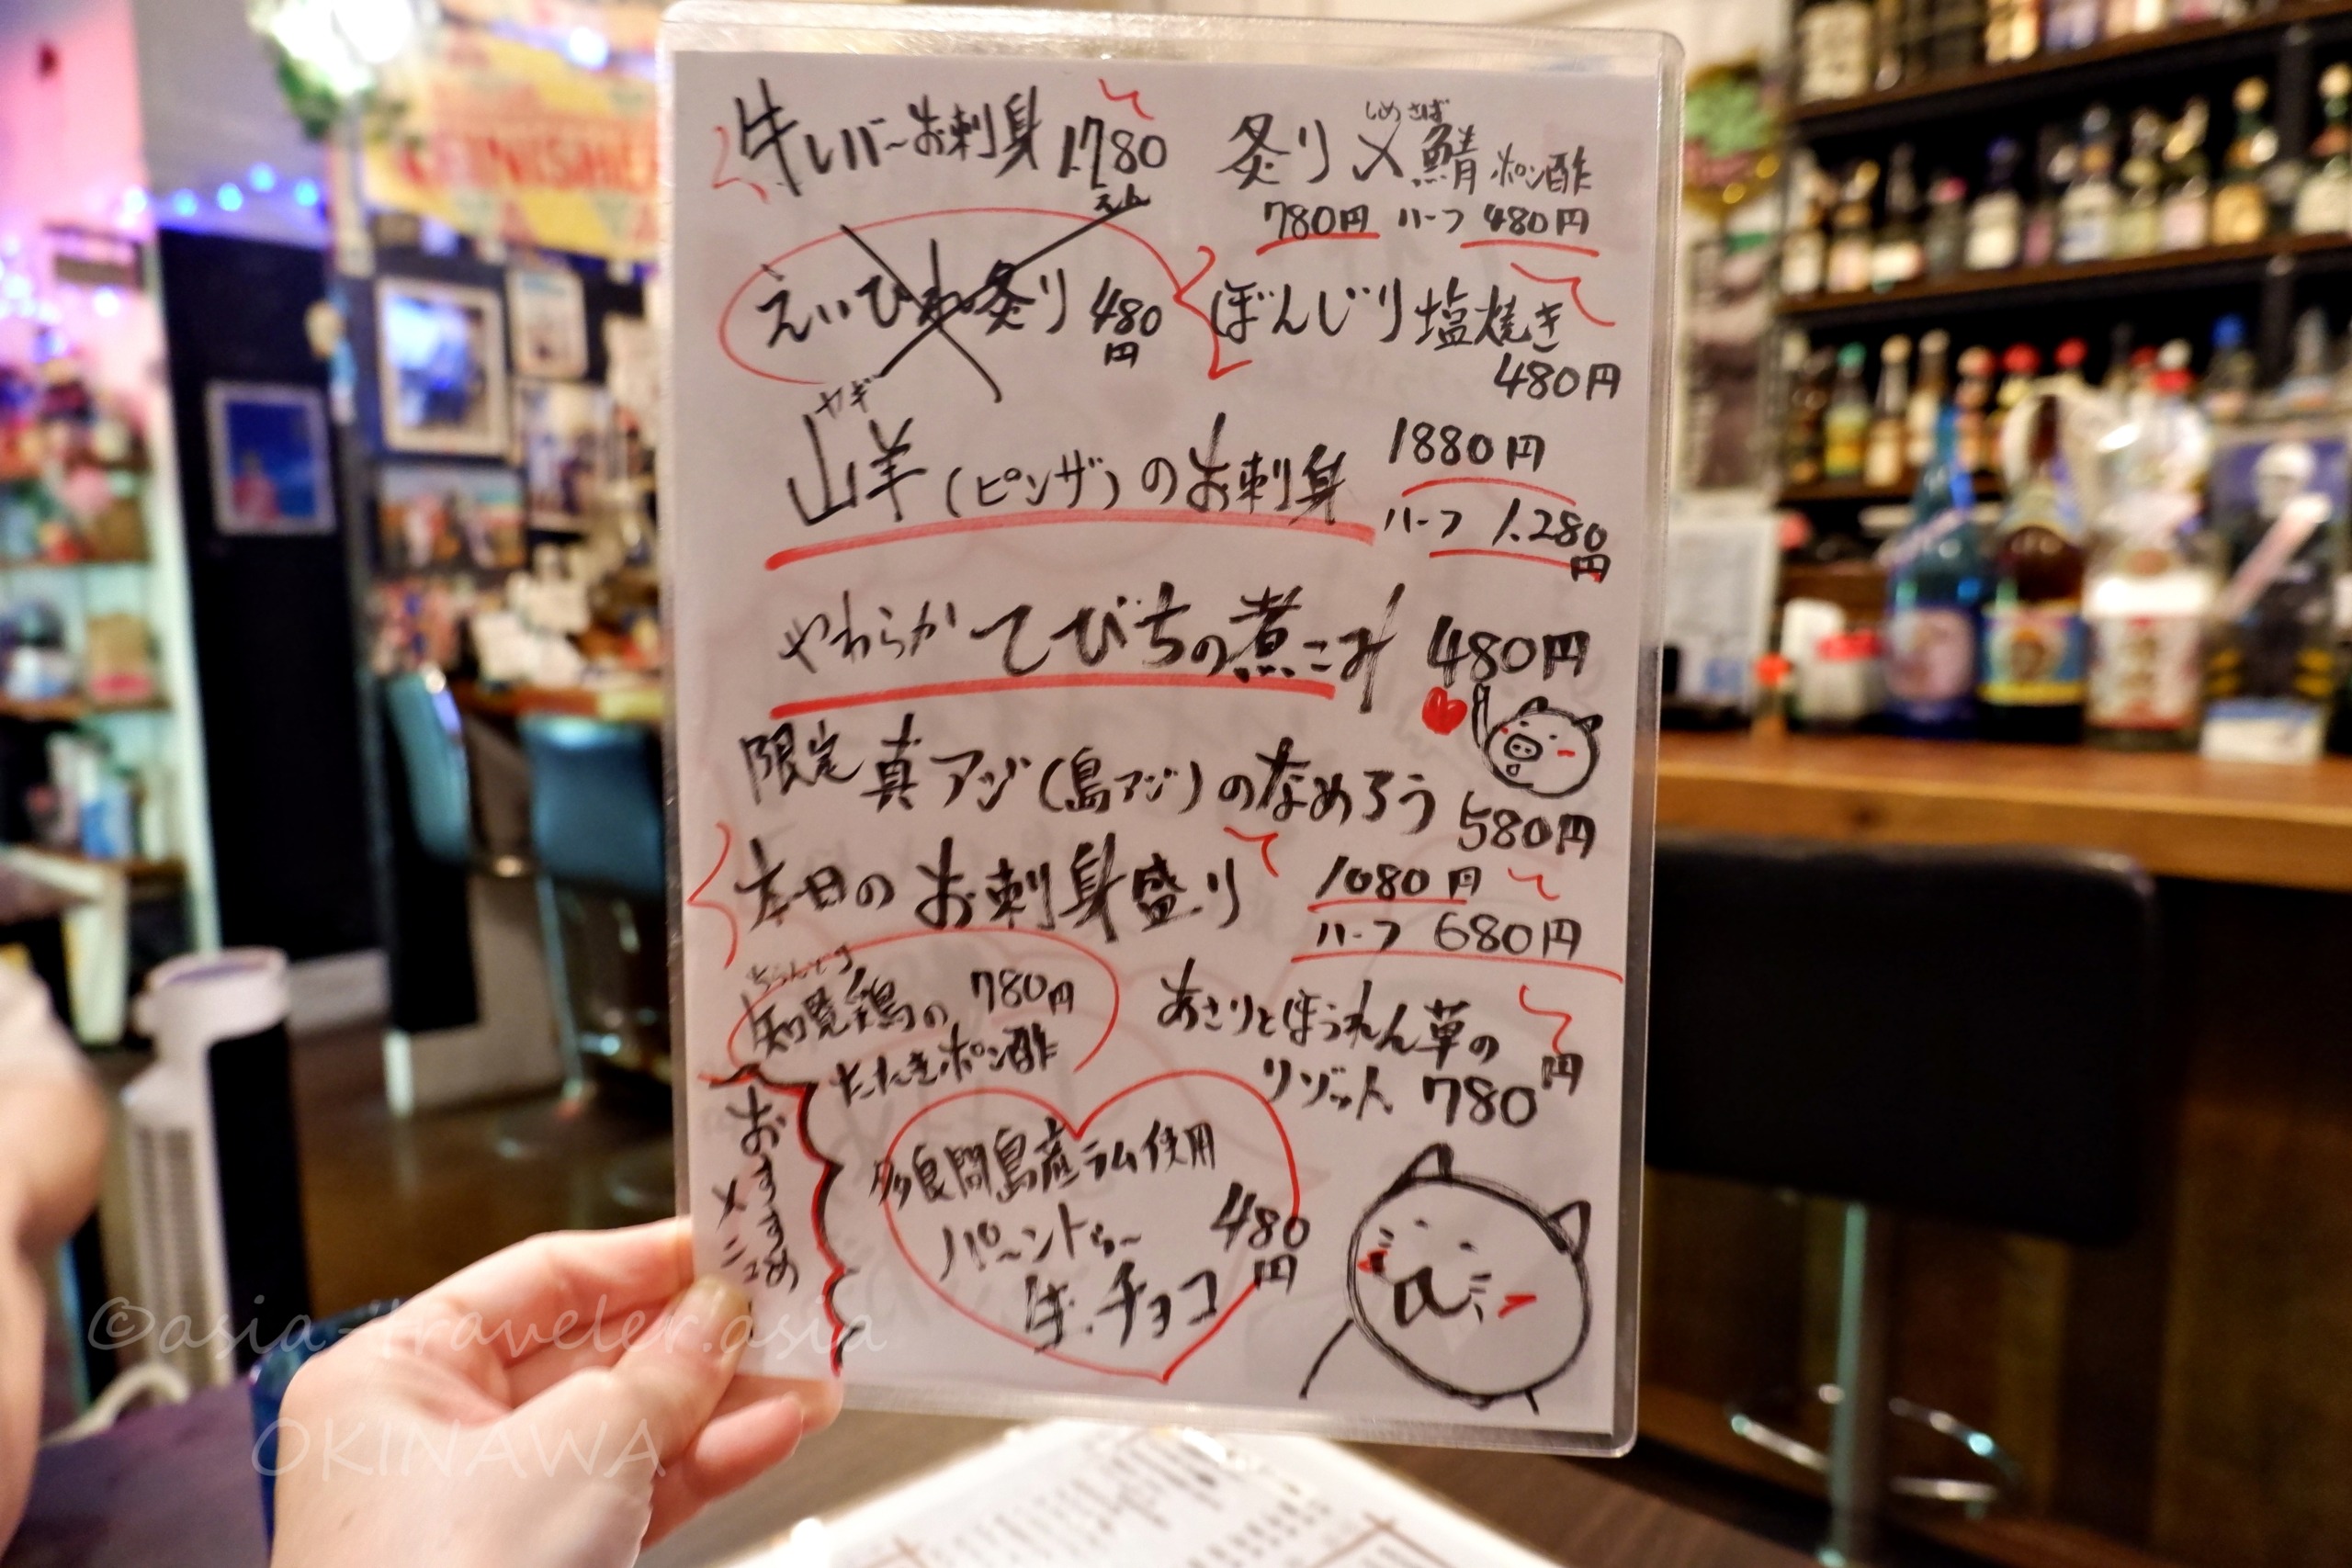 牛レバーお刺身 1.780えん
しめさば
炙り〆鯖 ポン酢
780円 ハーフ 480円
えいひれの炙り 480円
ぼんじり塩焼き
480円
ヤギ
山羊(ピンザ)のお刺身 1880円
ハーフ 1.280円
やわらかてびちの煮こみ 480円
限定 真アジ(島アジ)のなめろう 580円
本日のお刺身盛り 1080円
ハーフ 680円
知覧鶏の 780円
たたきポン酢
あさりとほうれん草の
リゾット 780円
おすすめ
メニュー
多良間島産ラム使用
パーントゥー 480円
生チョコ
©asia-traveler.asia
OKINAWA